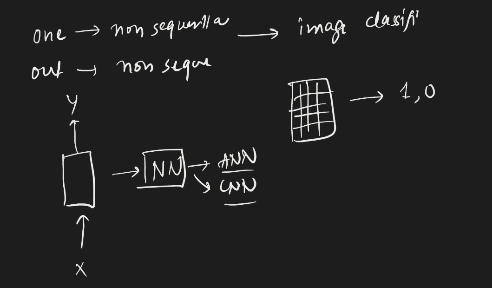 one → non sequentia → image clasifi
out → non seque
→ 1, 0
Y
→ NN → ANN
→ CNN
X